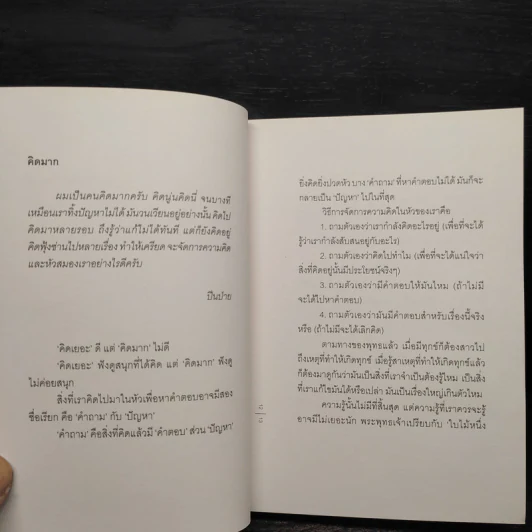 คิดมาก
ผมเป็นคนคิดมากครับ คิดนู่นคิดนี่ จนบางที
เหมือนเราทิ้งปัญหาไม่ได้ มันวนเวียนอยู่อย่างนั้น คิดไป
คิดมาหลายรอบ ถึงรู้ว่าแก้ไม่ได้ทันที แต่ก็ยังคิดอยู่
คิดฟุ้งซ่านไปหลายเรื่อง ทำให้เครียด จะจัดการความคิด
และหัวสมองเราอย่างไรดีครับ
ปืนป่าย
'คิดเยอะ' ดี แต่ 'คิดมาก' ไม่ดี
'คิดเยอะ' ฟังดูสนุกที่ได้คิด แต่ 'คิดมาก' ฟังดู
ไม่ค่อยสนุก
สิ่งที่เราคิดไปมาในหัวเพื่อหาคำตอบอาจมีสอง
ชื่อเรียก คือ 'คำถาม' กับ 'ปัญหา'
'คำถาม' คือสิ่งที่คิดแล้วมี 'คำตอบ' ส่วน 'ปัญหา'
ยิ่งคิดยิ่งปวดหัว บาง 'คำถาม' ที่หาคำตอบไม่ได้ มันก็จะ
กลายเป็น 'ปัญหา' ไปในที่สุด
วิธีการจัดการความคิดในหัวของเราคือ
1. ถามตัวเองว่าเรากำลังคิดอะไรอยู่ (เพื่อที่จะได้
รู้ว่าเรากำลังสับสนอยู่กับอะไร)
2. ถามตัวเองว่าคิดไปทำไม (เพื่อที่จะได้แน่ใจว่า
สิ่งที่คิดอยู่นั้นมีประโยชน์จริงๆ)
3. ถามตัวเองว่ามีคำตอบให้มันไหม (ถ้าไม่มี
จะได้ไปหาคำตอบ)
4. ถามตัวเองว่ามันมีคำตอบสำหรับเรื่องนี้จริง
หรือ (ถ้าไม่มีจะได้เลิกคิด)
ตามทางของพุทธแล้ว เมื่อมีทุกข์ก็ต้องสาวไป
ถึงเหตุที่ทำให้เกิดทุกข์ เมื่อรู้สาเหตุที่ทำให้เกิดทุกข์แล้ว
ก็ต้องมาดูกันว่ามันเป็นสิ่งที่เราจำเป็นต้องรู้ไหม เป็นสิ่ง
ที่เราแก้ไขมันได้หรือเปล่า มันเป็นเรื่องใหญ่เกินตัวไหม
ความรู้นั้นไม่มีที่สิ้นสุด แต่ความรู้ที่เราควรจะรู้
อาจมีไม่เยอะนัก พระพุทธเจ้าเปรียบกับ 'ใบไม้หนึ่ง